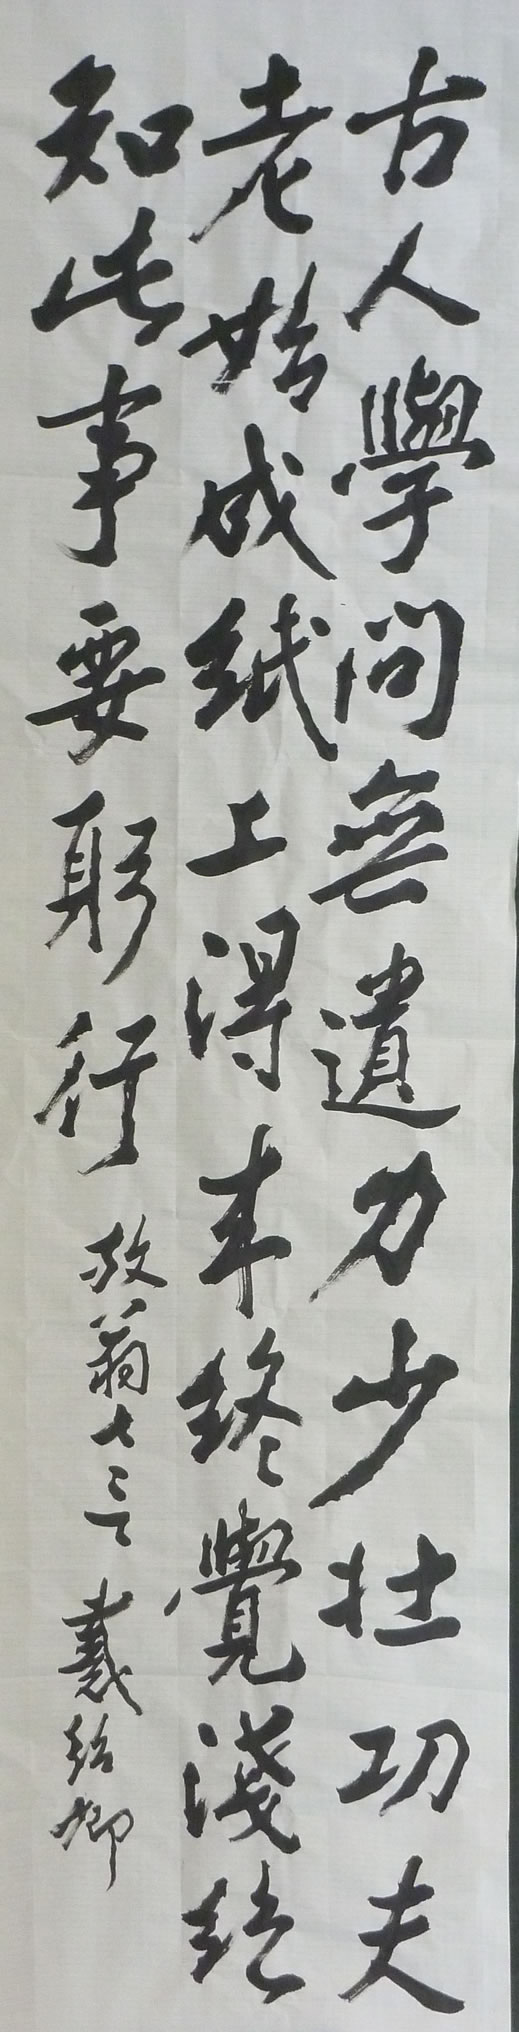 古人學問無遺力少壯功夫
老始成紙上得來終覺淺絕
知此事要躬行 放翁七言 戴紹卿